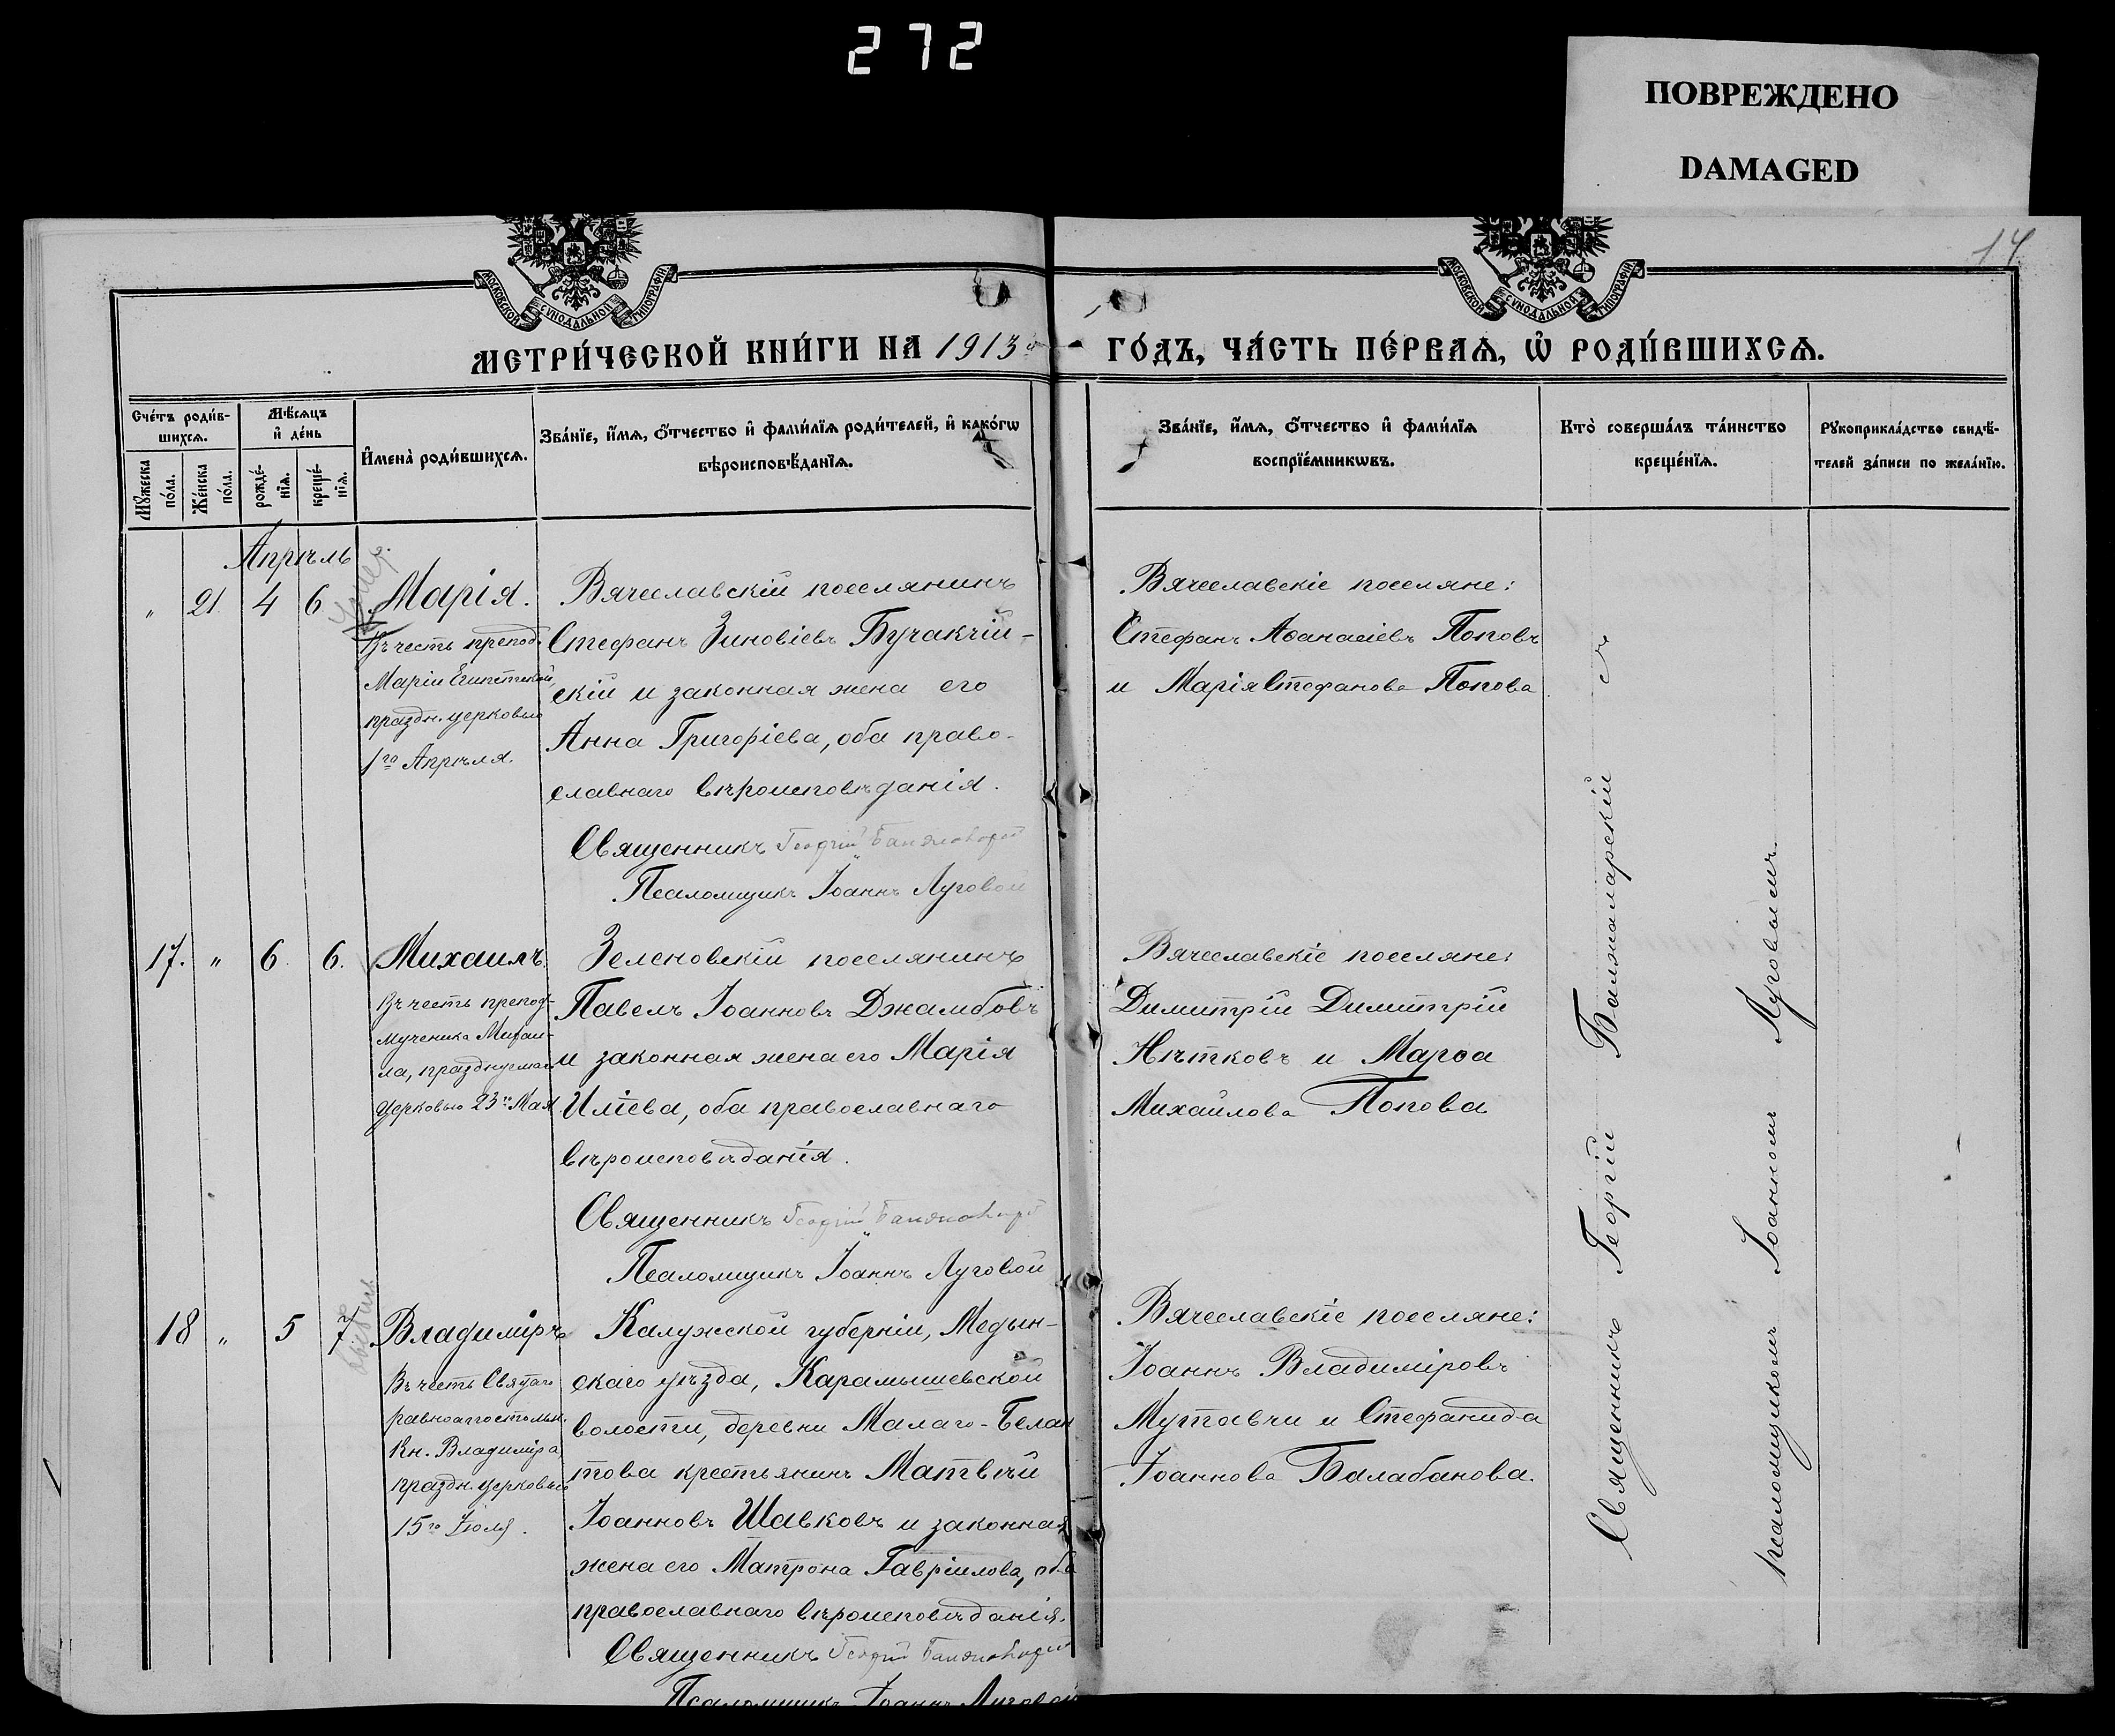 272
ПОВРЕЖДЕНО
DAMAGED
14
МОСКОВСКОЙ СУНОДАЛЬНОЙ ТИПОГРАФІИ
МОСКОВСКОЙ СУНОДАЛЬНОЙ ТИПОГРАФІИ
МЕТРИ́ЧЕСКОЙ КНИ́ГИ НА 1913 й
ГО́ДЪ, ЧА́СТЬ ПЕ́РВАѦ, Ѡ҆ РОДИ́ВШИХСѦ.
Сче́тъ роди́в-
шихсѧ.
Мꙋжеска по́ла.
Же́нска по́ла.
Мѣ́сѧцъ
и҆ де́нь
рожде́-
нїѧ.
креще́-
нїѧ.
И҆мена̀ роди́вшихсѧ.
Зва́нїе, и҆́мѧ, ѻ҆́тчество и҆ фами́лїѧ роди́телей, и҆ како́гѡ
вѣроисповѣ́данїѧ.
Зва́нїе, и҆́мѧ, ѻ҆́тчество и҆ фами́лїѧ
воспрїе́мникѡвъ.
Кто̀ соверша́лъ та́инство
креще́нїѧ.
Рꙋкоприкла́дство свидѣ́-
телей за́писи по жела́нїю.
Апрѣль
" 21 4 6
Марія.
Въ честь препод.
Маріи Египетской,
праздн. церковью
1го Апрѣля.
Вячеславскій поселянинъ
Стефанъ Зиновіевъ Бучакчій-
скій и законная жена его
Анна Григоріева, оба право-
славнаго вѣроисповѣданія.
Священникъ Георгій
Псаломщикъ Іоаннъ Луговой
Вячеславскіе поселяне:
Стефанъ Аѳанасіевъ Поповъ
и Марія Стефанова Попова
17. " 6 6.
Михаилъ.
Въ честь препод-
мученика Михаи-
ла, празднуемаго
церковью 23го Мая
Зеленовскій поселянинъ
Павелъ Іоанновъ Джамбовъ
и законная жена его Марія
Иліева, оба православнаго
вѣроисповѣданія.
Священникъ Георгій
Псаломщикъ Іоаннъ Луговой
Вячеславскіе поселяне:
Димитрій Димитрій
Нѣтковъ и Марѳа
Михайлова Попова
18 " 5 7.
Владиміръ
Въ честь Святаго
равноапостольн.
Кн. Владиміра,
праздн. церковью
15го Іюля.
Калужской губерніи, Медын-
скаго уѣзда, Карамышевской
волости, деревни Малаго-Белан
това крестьянинъ Матвѣй
Іоанновъ Шавковъ и законная
жена его Матрона Гавріилова, оба
православнаго вѣроисповѣданія.
Священникъ Георгій
Псаломщикъ Іоаннъ Луговой
Вячеславскіе поселяне:
Іоаннъ Владиміровъ
Мутавчи и Стефанида
Іоаннова Балабанова.
Священникъ Георгій
псаломщикомъ Іоанномъ Луговымъ